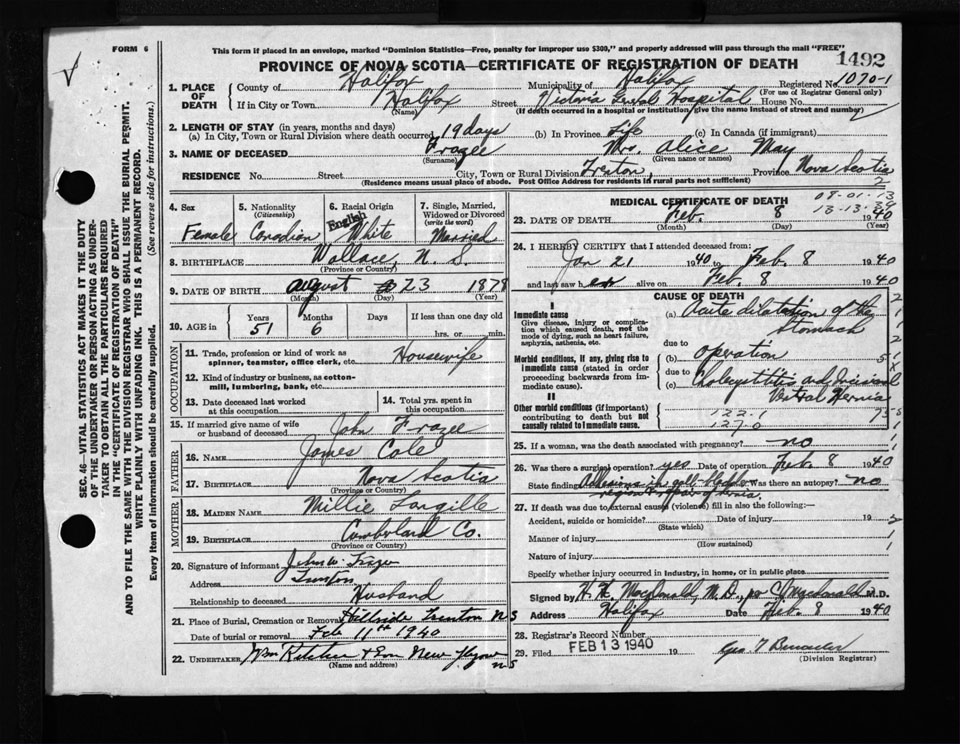 FORM 6
This form if placed in an envelope, marked "Dominion Statistics—Free, penalty for improper use $300," and properly addressed will pass through the mail "FREE"
PROVINCE OF NOVA SCOTIA—CERTIFICATE OF REGISTRATION OF DEATH
1492
SEC. 46—VITAL STATISTICS ACT MAKES IT THE DUTY
OF THE UNDERTAKER OR PERSON ACTING AS UNDER-
TAKER TO OBTAIN ALL THE PARTICULARS REQUIRED
IN THE "CERTIFICATE OF REGISTRATION OF DEATH"
AND TO FILE THE SAME WITH THE DIVISION REGISTRAR WHO SHALL ISSUE THE BURIAL PERMIT.
WRITE PLAINLY WITH UNFADING INK. THIS IS A PERMANENT RECORD.
Every item of information should be carefully supplied. (See reverse side for instructions.)
1. PLACE OF DEATH County of Halifax Municipality of Halifax Registered No. 1070-1
(For use of Registrar General only)
If in City or Town Halifax Street Victoria Hospital House No.
(Name) (If death occurred in a hospital or institution, give the name instead of street and number)
2. LENGTH OF STAY (in years, months and days)
(a) In City, Town or Rural Division where death occurred 19 days (b) In Province Life (c) In Canada (if immigrant)
3. NAME OF DECEASED Frazee Mrs. Alice May
(Surname) (Given name or names)
RESIDENCE No. Street City, Town or Rural Division Province Nova Scotia
(Residence means usual place of abode. Post Office Address for residents in rural parts not sufficient)
2
4. Sex 5. Nationality (Citizenship) 6. Racial Origin 7. Single, Married, Widowed or Divorced (write the word)
English
Female Canadian White Married
8. BIRTHPLACE Wallace, N. S.
(Province or Country)
9. DATE OF BIRTH August 23 1878
(Month) (Day) (Year)
10. AGE in Years Months Days If less than one day old
51 6 hrs. or min.
OCCUPATION
11. Trade, profession or kind of work as spinner, teamster, office clerk, etc. Housewife
12. Kind of industry or business, as cotton-mill, lumbering, bank, etc.
13. Date deceased last worked at this occupation 14. Total yrs. spent in this occupation
15. If married give name of wife or husband of deceased John Frazee
FATHER
16. NAME James Cole
17. BIRTHPLACE Nova Scotia
(Province or Country)
MOTHER
18. MAIDEN NAME Millie
19. BIRTHPLACE Cumberland Co.
(Province or Country)
20. Signature of informant John W.
Address Trenton
Relationship to deceased Husband
21. Place of Burial, Cremation or Removal Hillside Trenton NS
Date of burial or removal Feb 11th 1940
22. UNDERTAKER Wm & Son New
NS
(Name and address)
MEDICAL CERTIFICATE OF DEATH
23. DATE OF DEATH Feb. 8 1940
(Month) (Day)
24. I HEREBY CERTIFY that I attended deceased from:
Jan 21 1940 to Feb. 8 1940
and last saw her alive on Feb. 8 1940
CAUSE OF DEATH
I
Immediate cause
Give disease, injury or complication which caused death, not the mode of dying, such as heart failure, asphyxia, asthenia, etc.
(a) Acute dilatation of the Stomach
due to
Morbid conditions, if any, giving rise to immediate cause (stated in order proceeding backwards from immediate cause).
(b) operation
due to
(c) Cholecystitis and Incisional Ventral Hernia
II
Other morbid conditions (if important) contributing to death but not causally related to immediate cause.
122.1
127.0
25. If a woman, was the death associated with pregnancy? no
26. Was there a surgical operation? yes Date of operation Feb. 8 1940
State findings Adhesions in gall bladder Was there an autopsy? no
region & repair of hernia.
27. If death was due to external causes (violence) fill in also the following:—
Accident, suicide or homicide? Date of injury 19
(State which)
Manner of injury
(How sustained)
Nature of injury
Specify whether injury occurred in industry, in home, or in public place
Signed by H. K. MacDonald, M.D., per Macdonald M.D.
Address Halifax Date Feb. 8 1940
28. Registrar's Record Number
29. Filed FEB 13 1940 19
Geo. T
(Division Registrar)